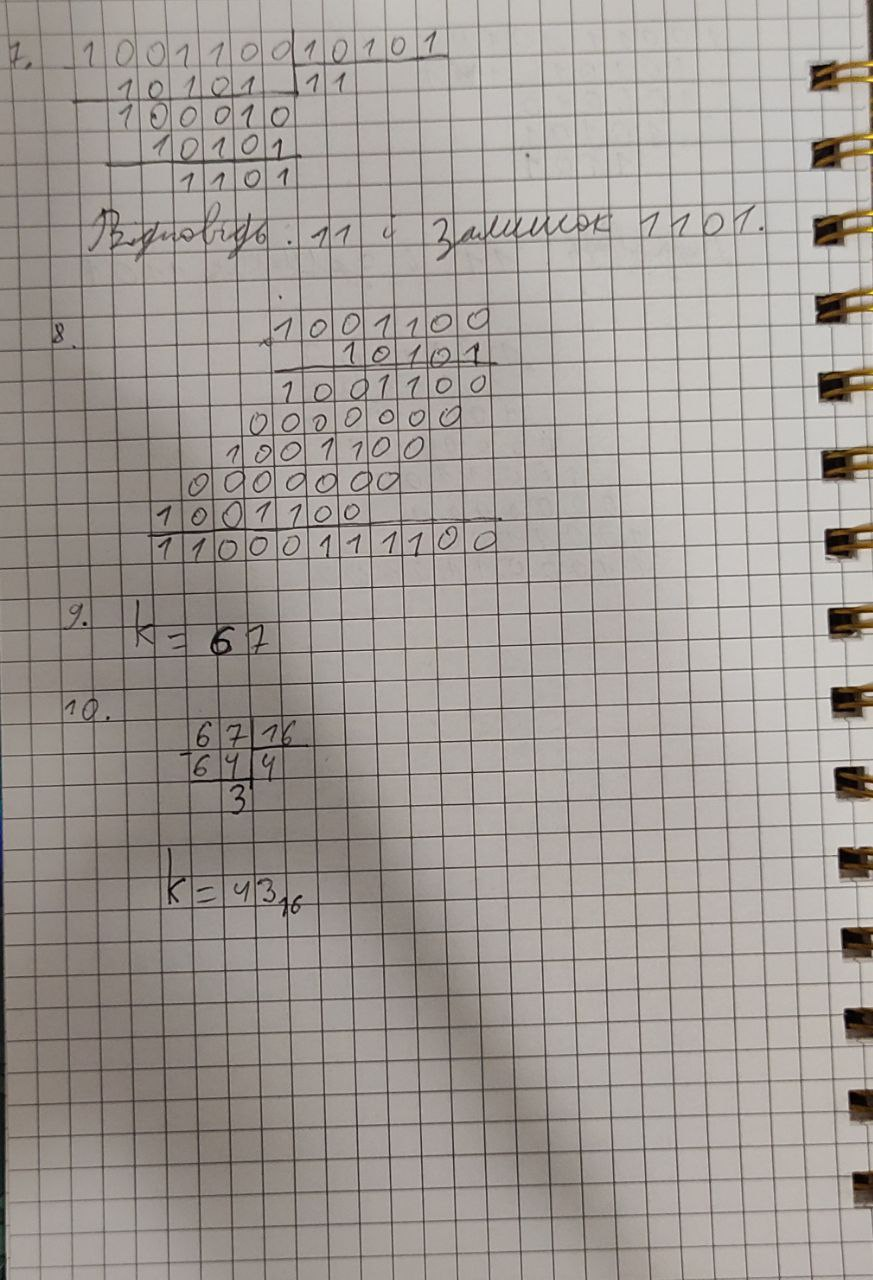 7. 1001100 10101
10101 11
100010
10101
1101
Відповідь: 11 і залишок 1101.
8. 1001100
10101
1001100
0000000
1001100
0000000
1001100
11000111100
9. k = 67
10.
67 16
- 64 4
3
k = 43₁₆